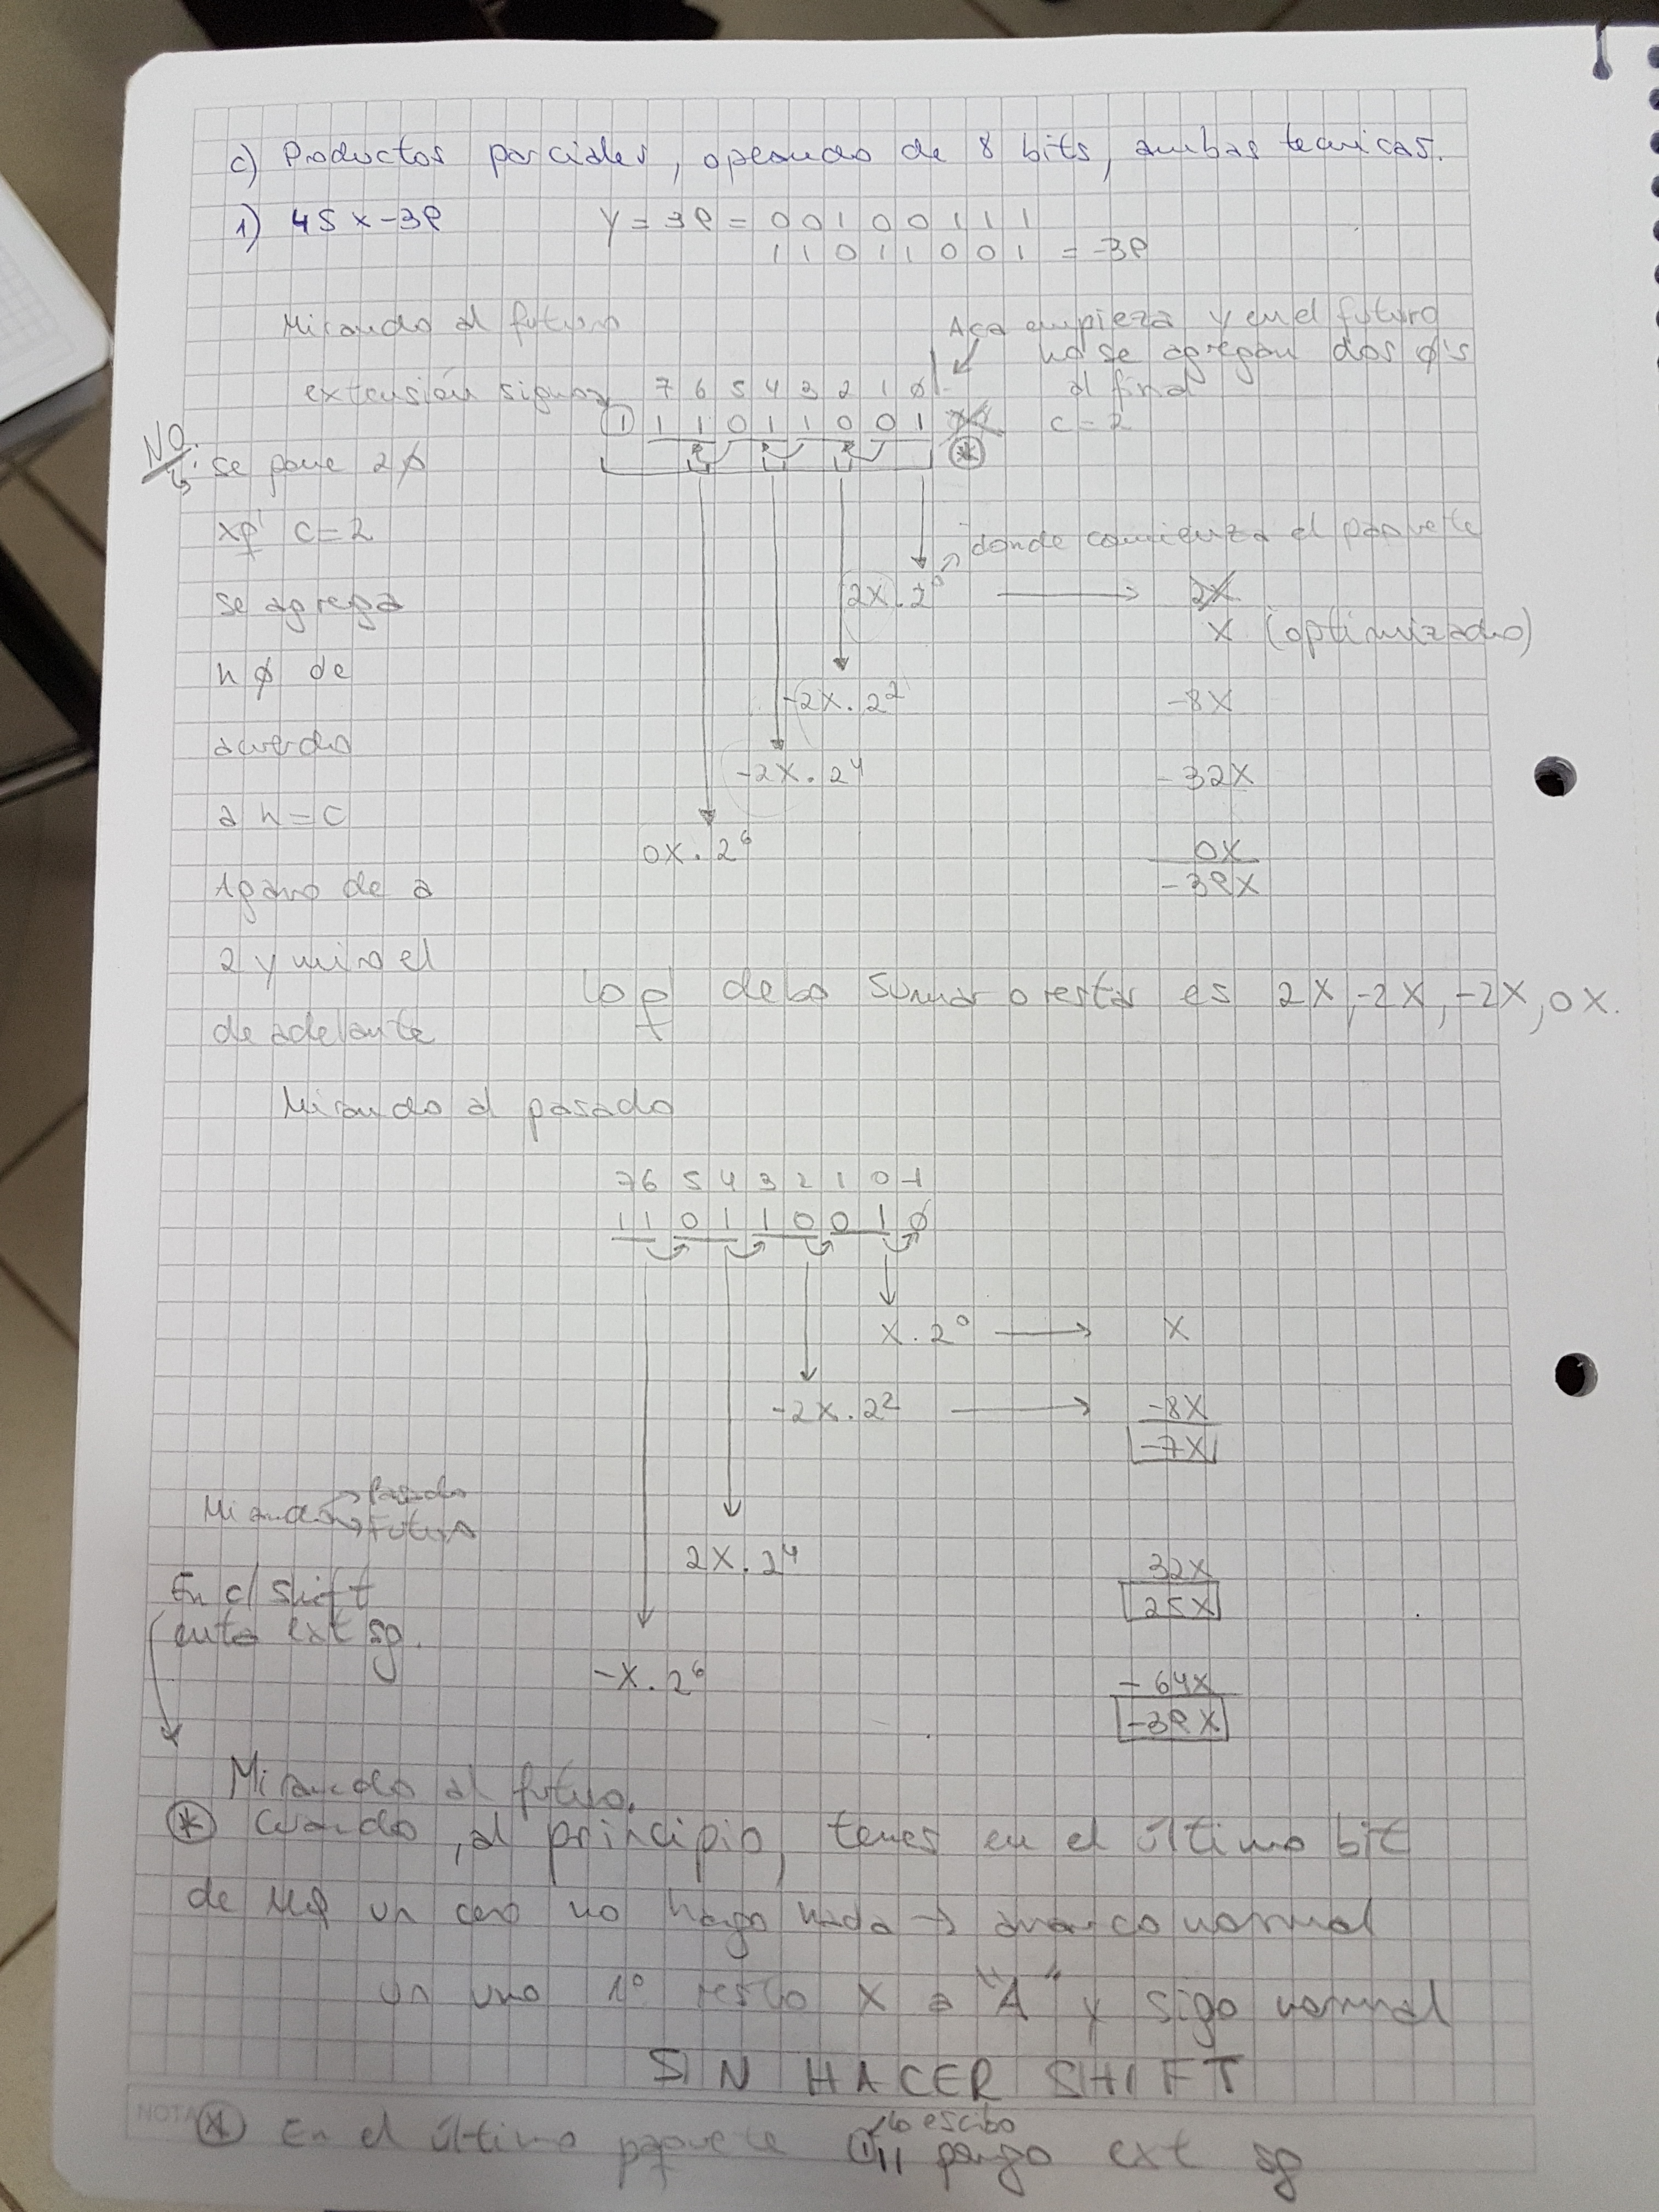 c) Productos parciales, operando de 8 bits, ambas tecnicas.
1) 45 x -39   Y = 39 = 0 0 1 0 0 1 1 1
1 1 0 1 1 0 0 1 = -39
Mirando al futuro
Aca empieza y en el futuro
no se agregan dos φ's
al final
extensión signo   7 6 5 4 3 2 1 φ
1 1 1 0 1 1 0 0 1   c = 2
NO.
se pone 2 φ
xq' c = 2
se agrega
n φ de
acuerdo
a n = c
Agarro de a
2 y miro el
de adelante
donde comienza el paquete
2X . 2⁰ → 2X
X (optimizado)
-2X . 2² -8X
-2X . 2⁴ -32X
0X . 2⁶ 0X
-39X
Lo q' debo sumar o restar es 2X, -2X, -2X, 0X.
Mirando al pasado
7 6 5 4 3 2 1 0 -1
1 1 0 1 1 0 0 1 φ
X . 2⁰ → X
-2X . 2² → -8X
-7X
Mirando → Pasado
→ Futuro
2X . 2⁴ 32X
25X
En c/ shift
ext sg.
-X . 2⁶ -64X
-39X
Mirando al futuro.
* Cuando, al principio, tenes en el último bit
de MQ un cero no hago nada → avanzo normal
un uno 1º resto X a "A" y sigo normal
SIN HACER SHIFT
NOTA
* En el último paquete ① 1 1 pongo ext sg
lo escibo